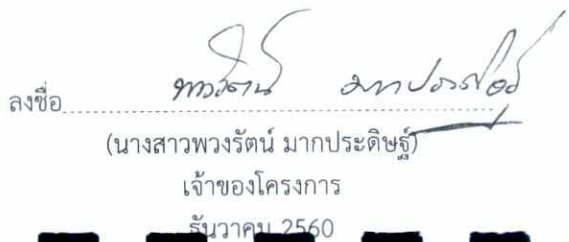 ลงชื่อ พวงรัตน์ มากประดิษฐ์
(นางสาวพวงรัตน์ มากประดิษฐ์)
เจ้าของโครงการ
ธันวาคม 2560